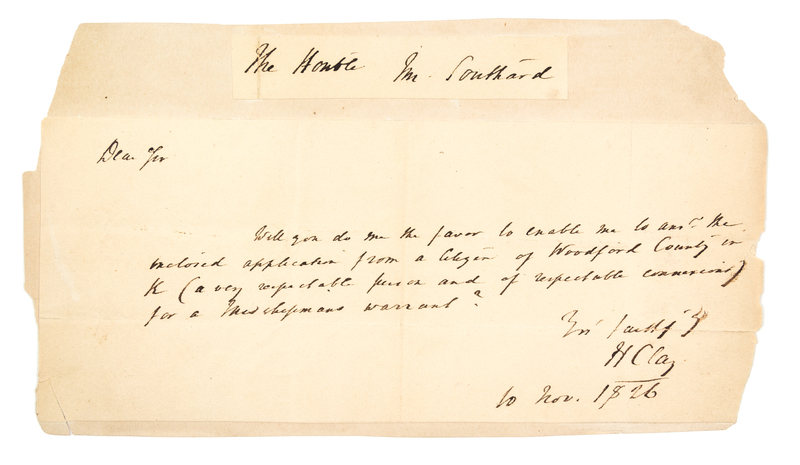 The Honble Mr. Southard
Dear Sir
Will you do me the favor to enable me to ansr. the
inclosed application from a Citizen of Woodford County in
K (a very respectable person and of respectable connexions)
for a Midshipmans warrant?
Yrs faithfy
H Clay
10 Nov. 1826